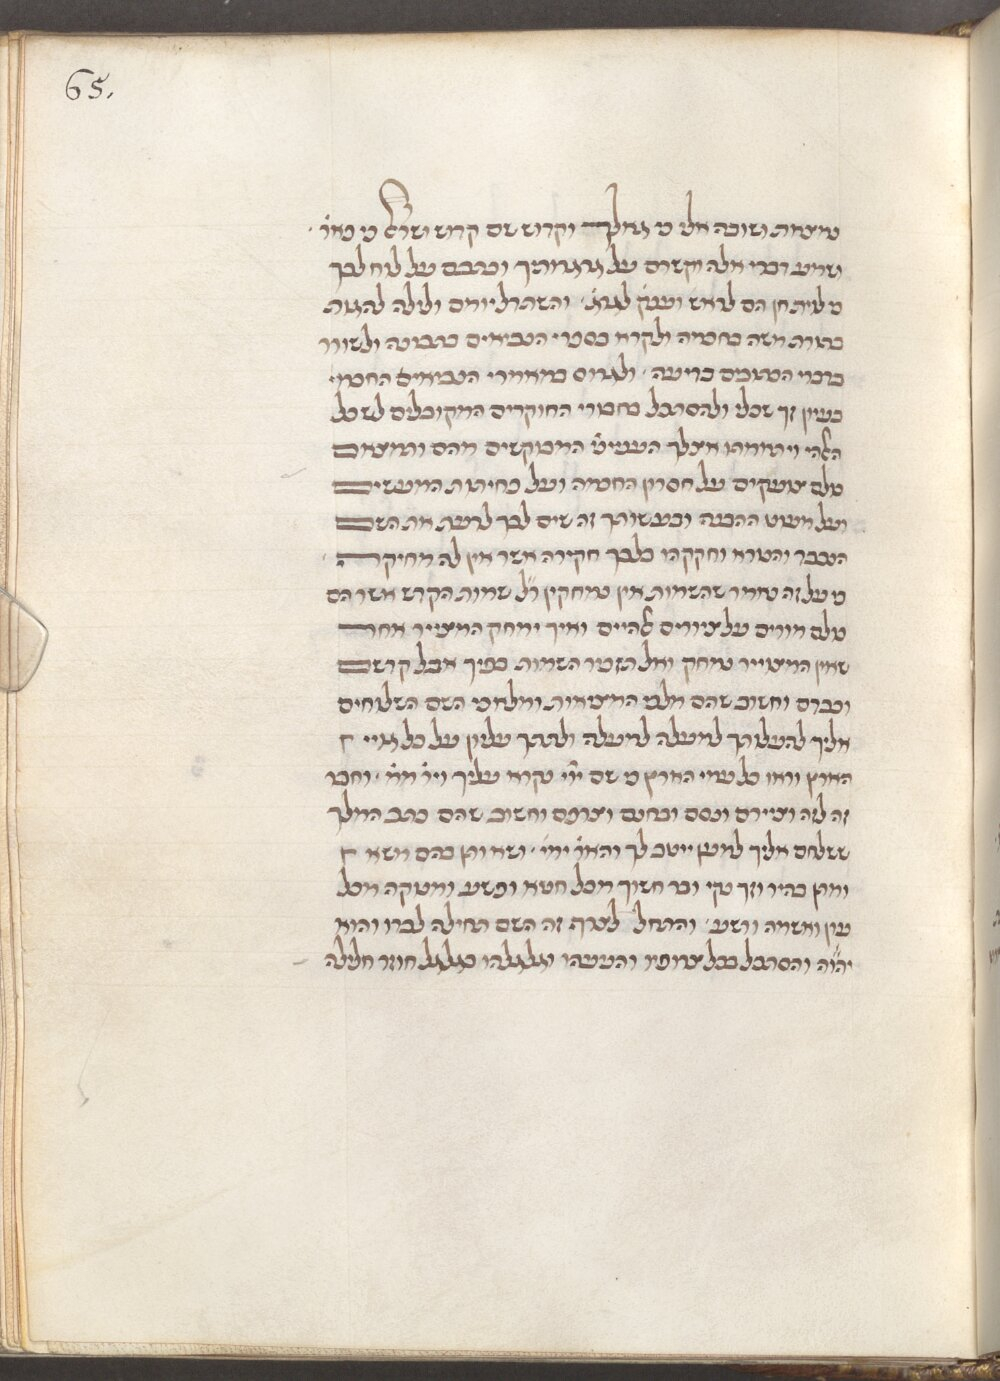 65.
ושובה אלי כי גאלתיך וקדוש שם קדוש ישראל
ושמע דברי אלה וקשרם על גרגרותיך וכתבם על לוח לבך
כי לוית חן הם לראש וענק לגרג׳ והשתדל יומם ולילה להגות
בתורת משה בחכמה ולקרא בספרי הנביאים בתבונה ולשורר
בדברי הכתובים בדיעה ולגרוס במאמרי הנביאים החכמי׳
בעיון זך שכלי ולהסתכל בחבורי החוקרים המקובלים לשכל
האלהי ויתיחתו אצלך העניני׳ המבוקשים מהם ותמצאם
כלם צועקים על חסרון החכמה ועל פחיתות המעשים
ועל מעוט ההבנה ובעשותך זה שים לבך לדעת את השם
הנכבד והנורא וחקקהו בלבך חקיקה אשר אין לה מחיקה
כי על זה נאמר שהשמות אין נמחקין ר״ל שמות הקדש אשר הם
כלם מורים על ציורים אלהיים ואיך ימחק המצוייר אחר
שאין המצייר נמחק ואל תזכור השמות בפיך אבל קדשם
וכבדם וחשוב שהם מלכי המציאות ומלאכי השם השלוחים
אליך להעלותך למעלה למעלה ולתתך עליון על כל גויי
הארץ וראו כל עמי הארץ כי שם יי׳ נקרא עליך ויר׳ ממ׳ וחבר
זה לזה וציירם ונסם ובחנם וצרפם וחשוב שהם כתב המלך
ששלחם אליך למען ייטב לך והאר׳ ימי׳ ושא ותן בהם משא
ומתן בהיר וזך נקי ובר חשוך מכל חטא ופשע ומנוקה מכל
עון ואשמה ורשע והתחל לצרף זה השם תחילה לבדו והוא
יהו״ה והסתכל בכל צרופיו והניעהו וגלגלהו כגלגל חוזר חלילה